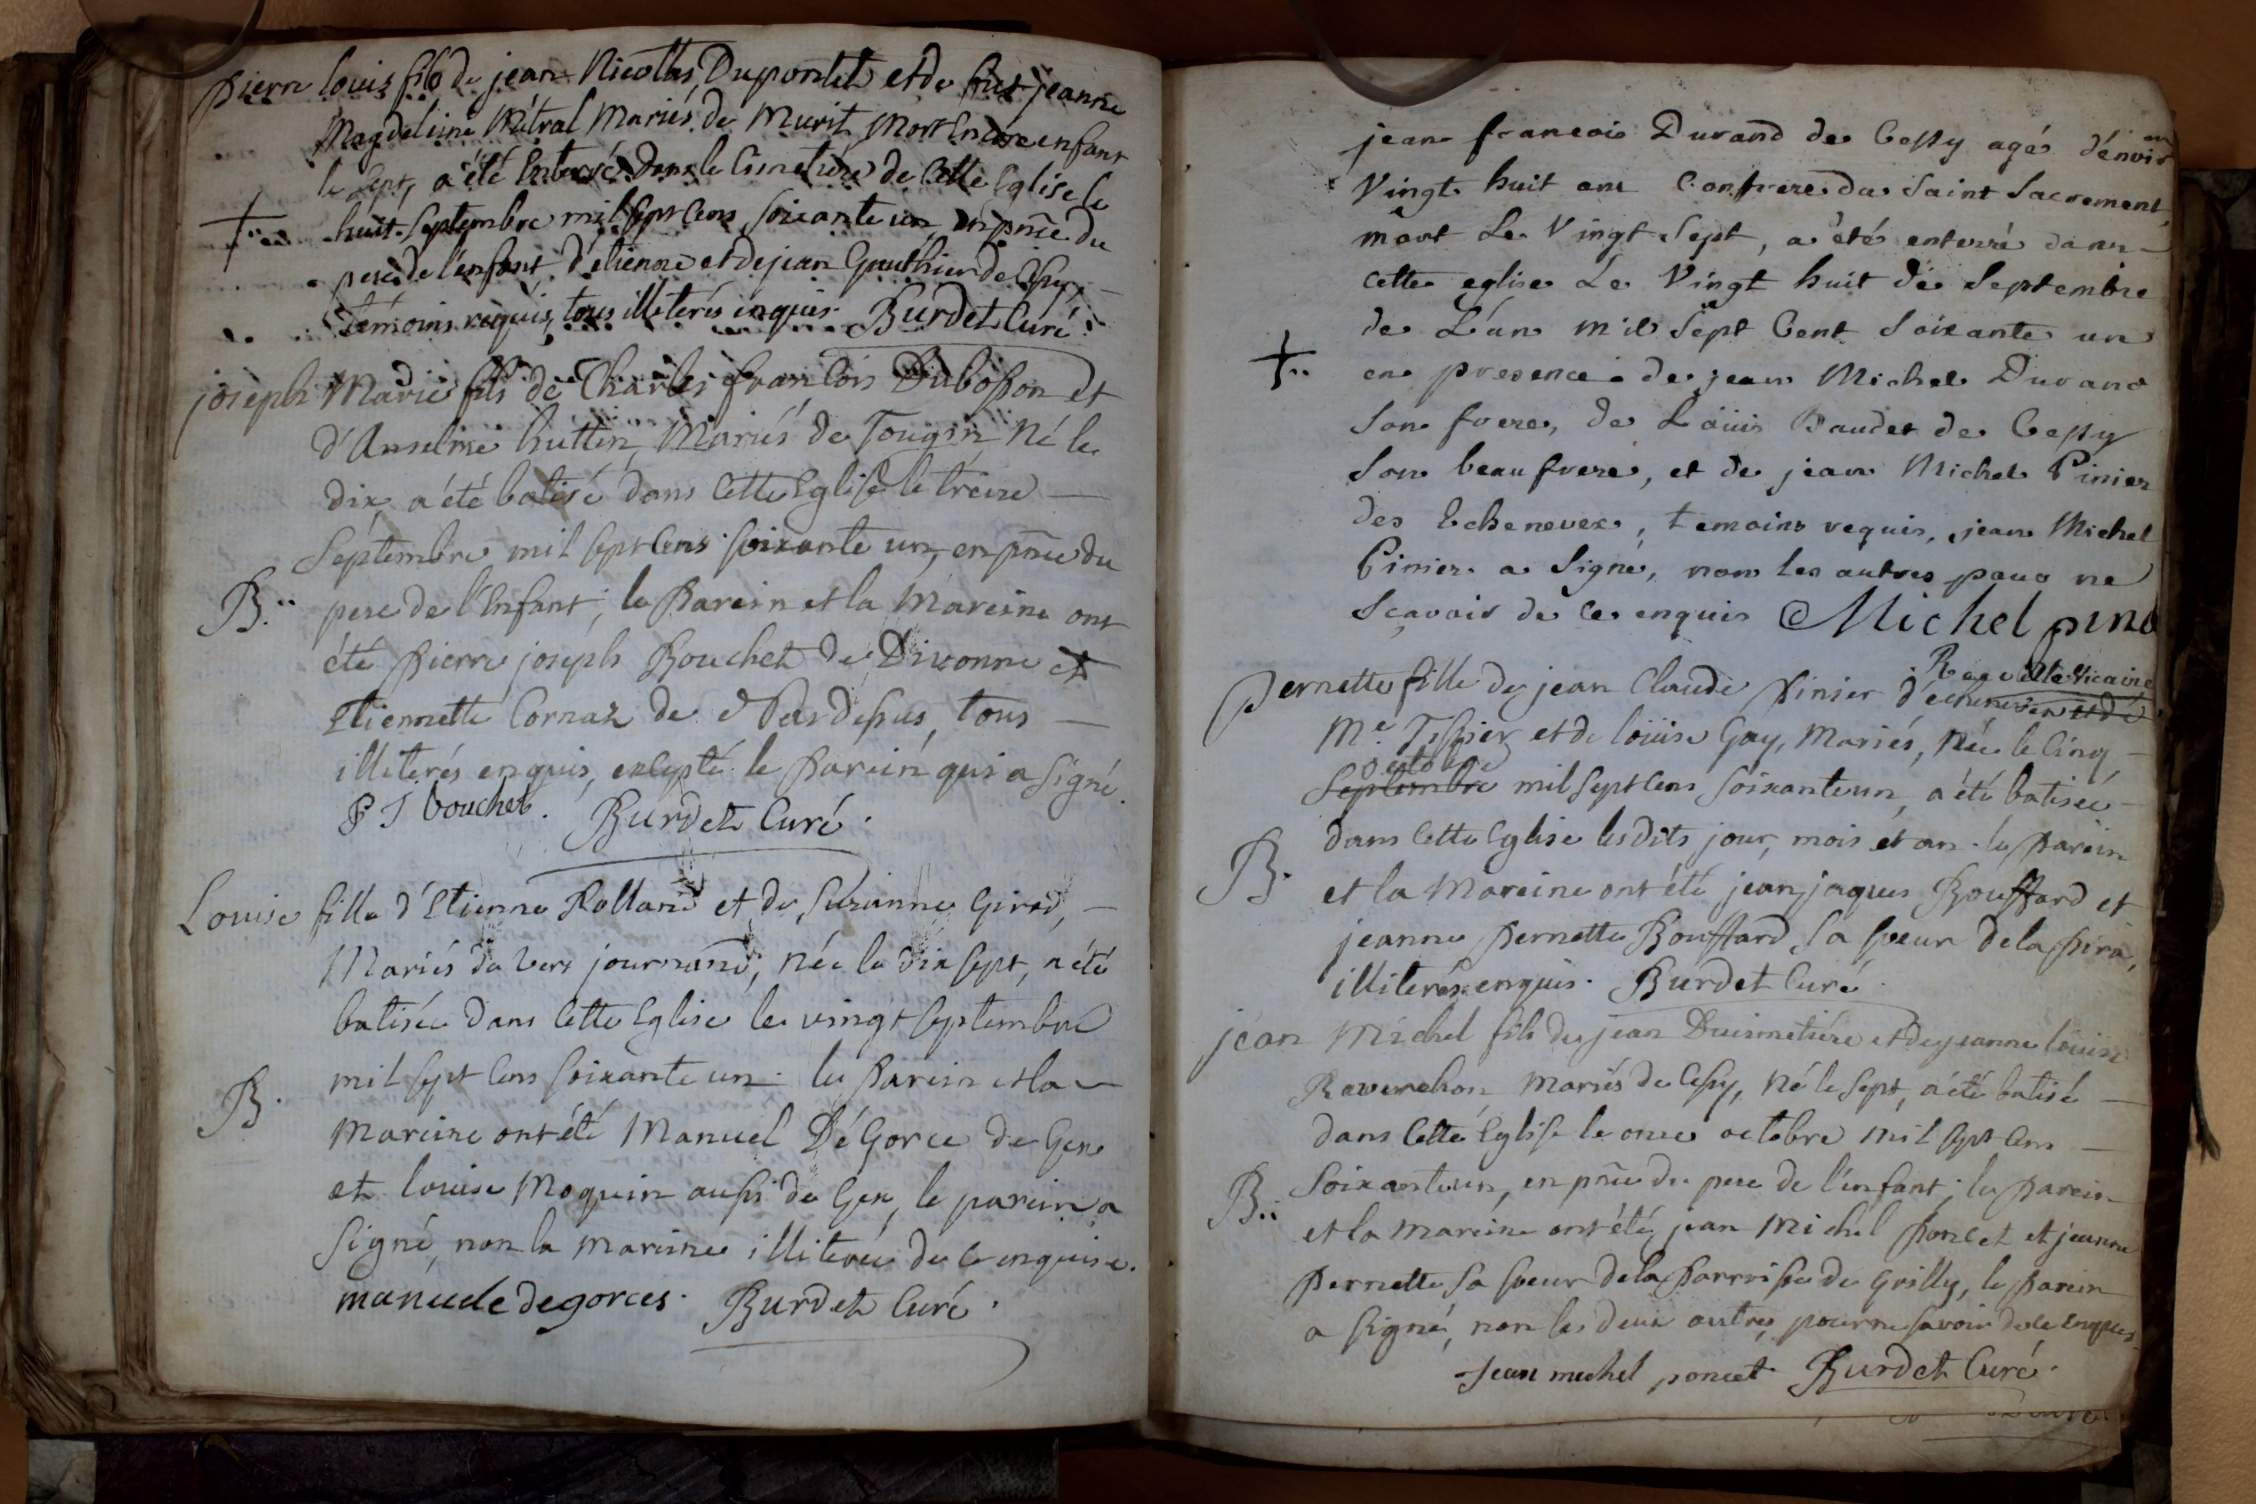 Pierre louis fils de jean Nicolas Dupontet et de fût jeanne
Magdeleine Métral Mariés de Murit, Mort Encore enfant
le sept, a été Enterré Dans le Cimetière de Cette Eglise le
+ huit Septembre mil sept Cens soixante un, en pñce du
pere de l'enfant, d'étienne et de jean Gauthier de Cessy,
Témoins requis, tous illiterés enquis. Burdet Curé.
joseph Marie fils de Charles françois Dubosson et
d'Anselme huttin, Mariés de Tougin, Né le
dix, a été batisé dans Cette Eglise le treize
Septembre mil sept Cens soixante un, en pñce du
B. pere de l'Enfant; le Parein et la Mareine ont
été Pierre joseph Bouchet de Divonne et
Etiennette Cornaz de dessus, tous
illiterés enquis, excepté le Parein qui a signé.
P J bouchet. Burdet Curé.
Louise fille d'Etienne Rolland et de Suzanne Girod,
Mariés de Vers journand, Née le dix sept, a été
batisée dans Cette Eglise le vingt Septembre
B. mil sept Cens soixante un. le Parein et la
Mareine ont été Manuel DéGorce de Gex
et louise Moquin aussi de Gex, le parein a
signé, non la mareine illiterée de ce enquise.
manuele degorces. Burdet Curé.
jean francois Durand de Cessy agé d'environ
Vingt huit ans Confrere du Saint Sacrement,
mort Le Vingt Sept, a été enterré dans
cette eglise Le Vingt huit de Septembre
de L'an mil Sept Cent Soixante un
+ en presence de jean Michel Durand
Son frere, de Loüis Baudet de Cessy
Son beaufrere, et de jean Michel Pinier
des Echenevex, temoins requis, jean Michel
Pinier a Signé, non les autres pour ne
Sçavoir de ce enquis Michel pine
vicaire
Pernette fille de jean Claude Pinier d'echenevex et de
Me. Tissier et de loüise Gay, Mariés, Née le Cinq
octobre
Septembre mil sept Cens soixante un, a été batisée
dans Cette Eglise lesdits jour, mois et an. le Parein
B. et la Mareine ont été jean jaques Bouffard et
jeanne Pernette Bouffard sa soeur de la Pira,
illiterés enquis. Burdet Curé.
jean Michel fils de jean Duimetière et de jeanne louise
Reverchon Mariés de Cessy, Né le sept, a été batisé
dans Cette Eglise le onze octobre mil sept Cens
B. soixante un, en pñce du pere de l'enfant; le Parein
et la Mareine ont été jean Michel Poncet et jeanne
Pernette sa soeur de la Parroisse de Grilly, le Parein
a signé, non les deux autres pour ne savoir de ce Enquis.
Jean michel poncet Burdet Curé.